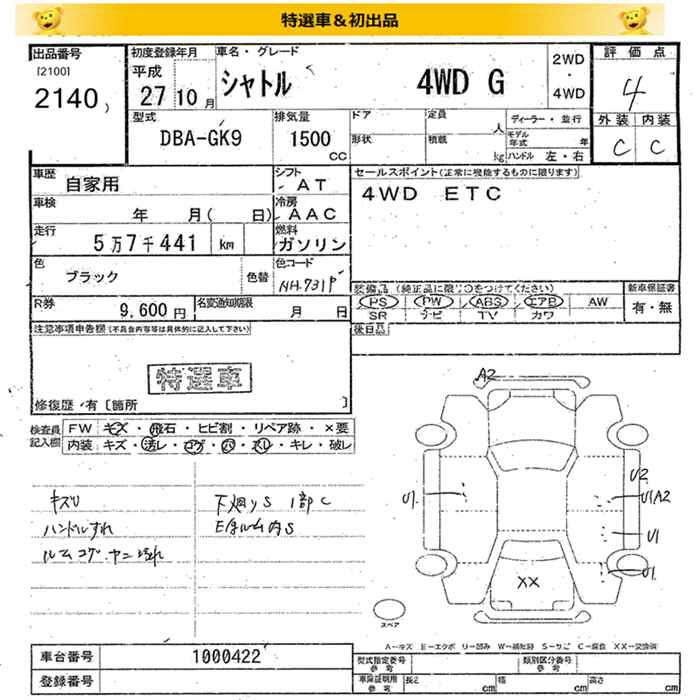 特選車＆初出品
出品番号 初度登録年月 車名・グレード 評価点
[2100] 平成 2WD
2140 ) 27 10 月 シャトル 4WD G ・ 4
4WD
外装 内装
型式 排気量 ドア 定員 人 ディーラー・並行 C C
DBA-GK9 1500 形状 積載 モデル年式 年
CC kg ハンドル 左・右
車歴 自家用 シフト AT セールスポイント(正常に機能するものに限ります)
車検 年 月( 日) 冷房 AAC 4WD ETC
走行 5万7千441 km 燃料 ガソリン
色 ブラック 色替 色コード NH.731P
装備品 (純正品に限り○をつけてください) 新車保証書
R券 9,600円 名変通知期限 月 日 PS PW ABS エアB AW 有・無
SR ナビ TV カワ
注意事項申告欄(不具合内容等は具体的に記入して下さい) 後日品
特選車
修復歴・有〔箇所 〕
検査員 FW キズ・飛石・ヒビ割・リペア跡・×要
記入欄 内装 キズ・汚レ・コゲ・穴・スレ・キレ・破レ
A2
キズU 下廻りS 1部C
ハンドルすれ Eルーム内S
ルームコゲ・ヤニ汚れ
U1 U2
U1A2
U1
U1
XX
スペア
A－キズ E－エクボ U－凹み W－補修跡 S－サビ C－腐食 XX－交換済
車台番号 1000422 型式指定番号 参考 類別区分番号 参考
登録番号 車庫証明用 参考 長さ cm 幅 cm 高さ cm